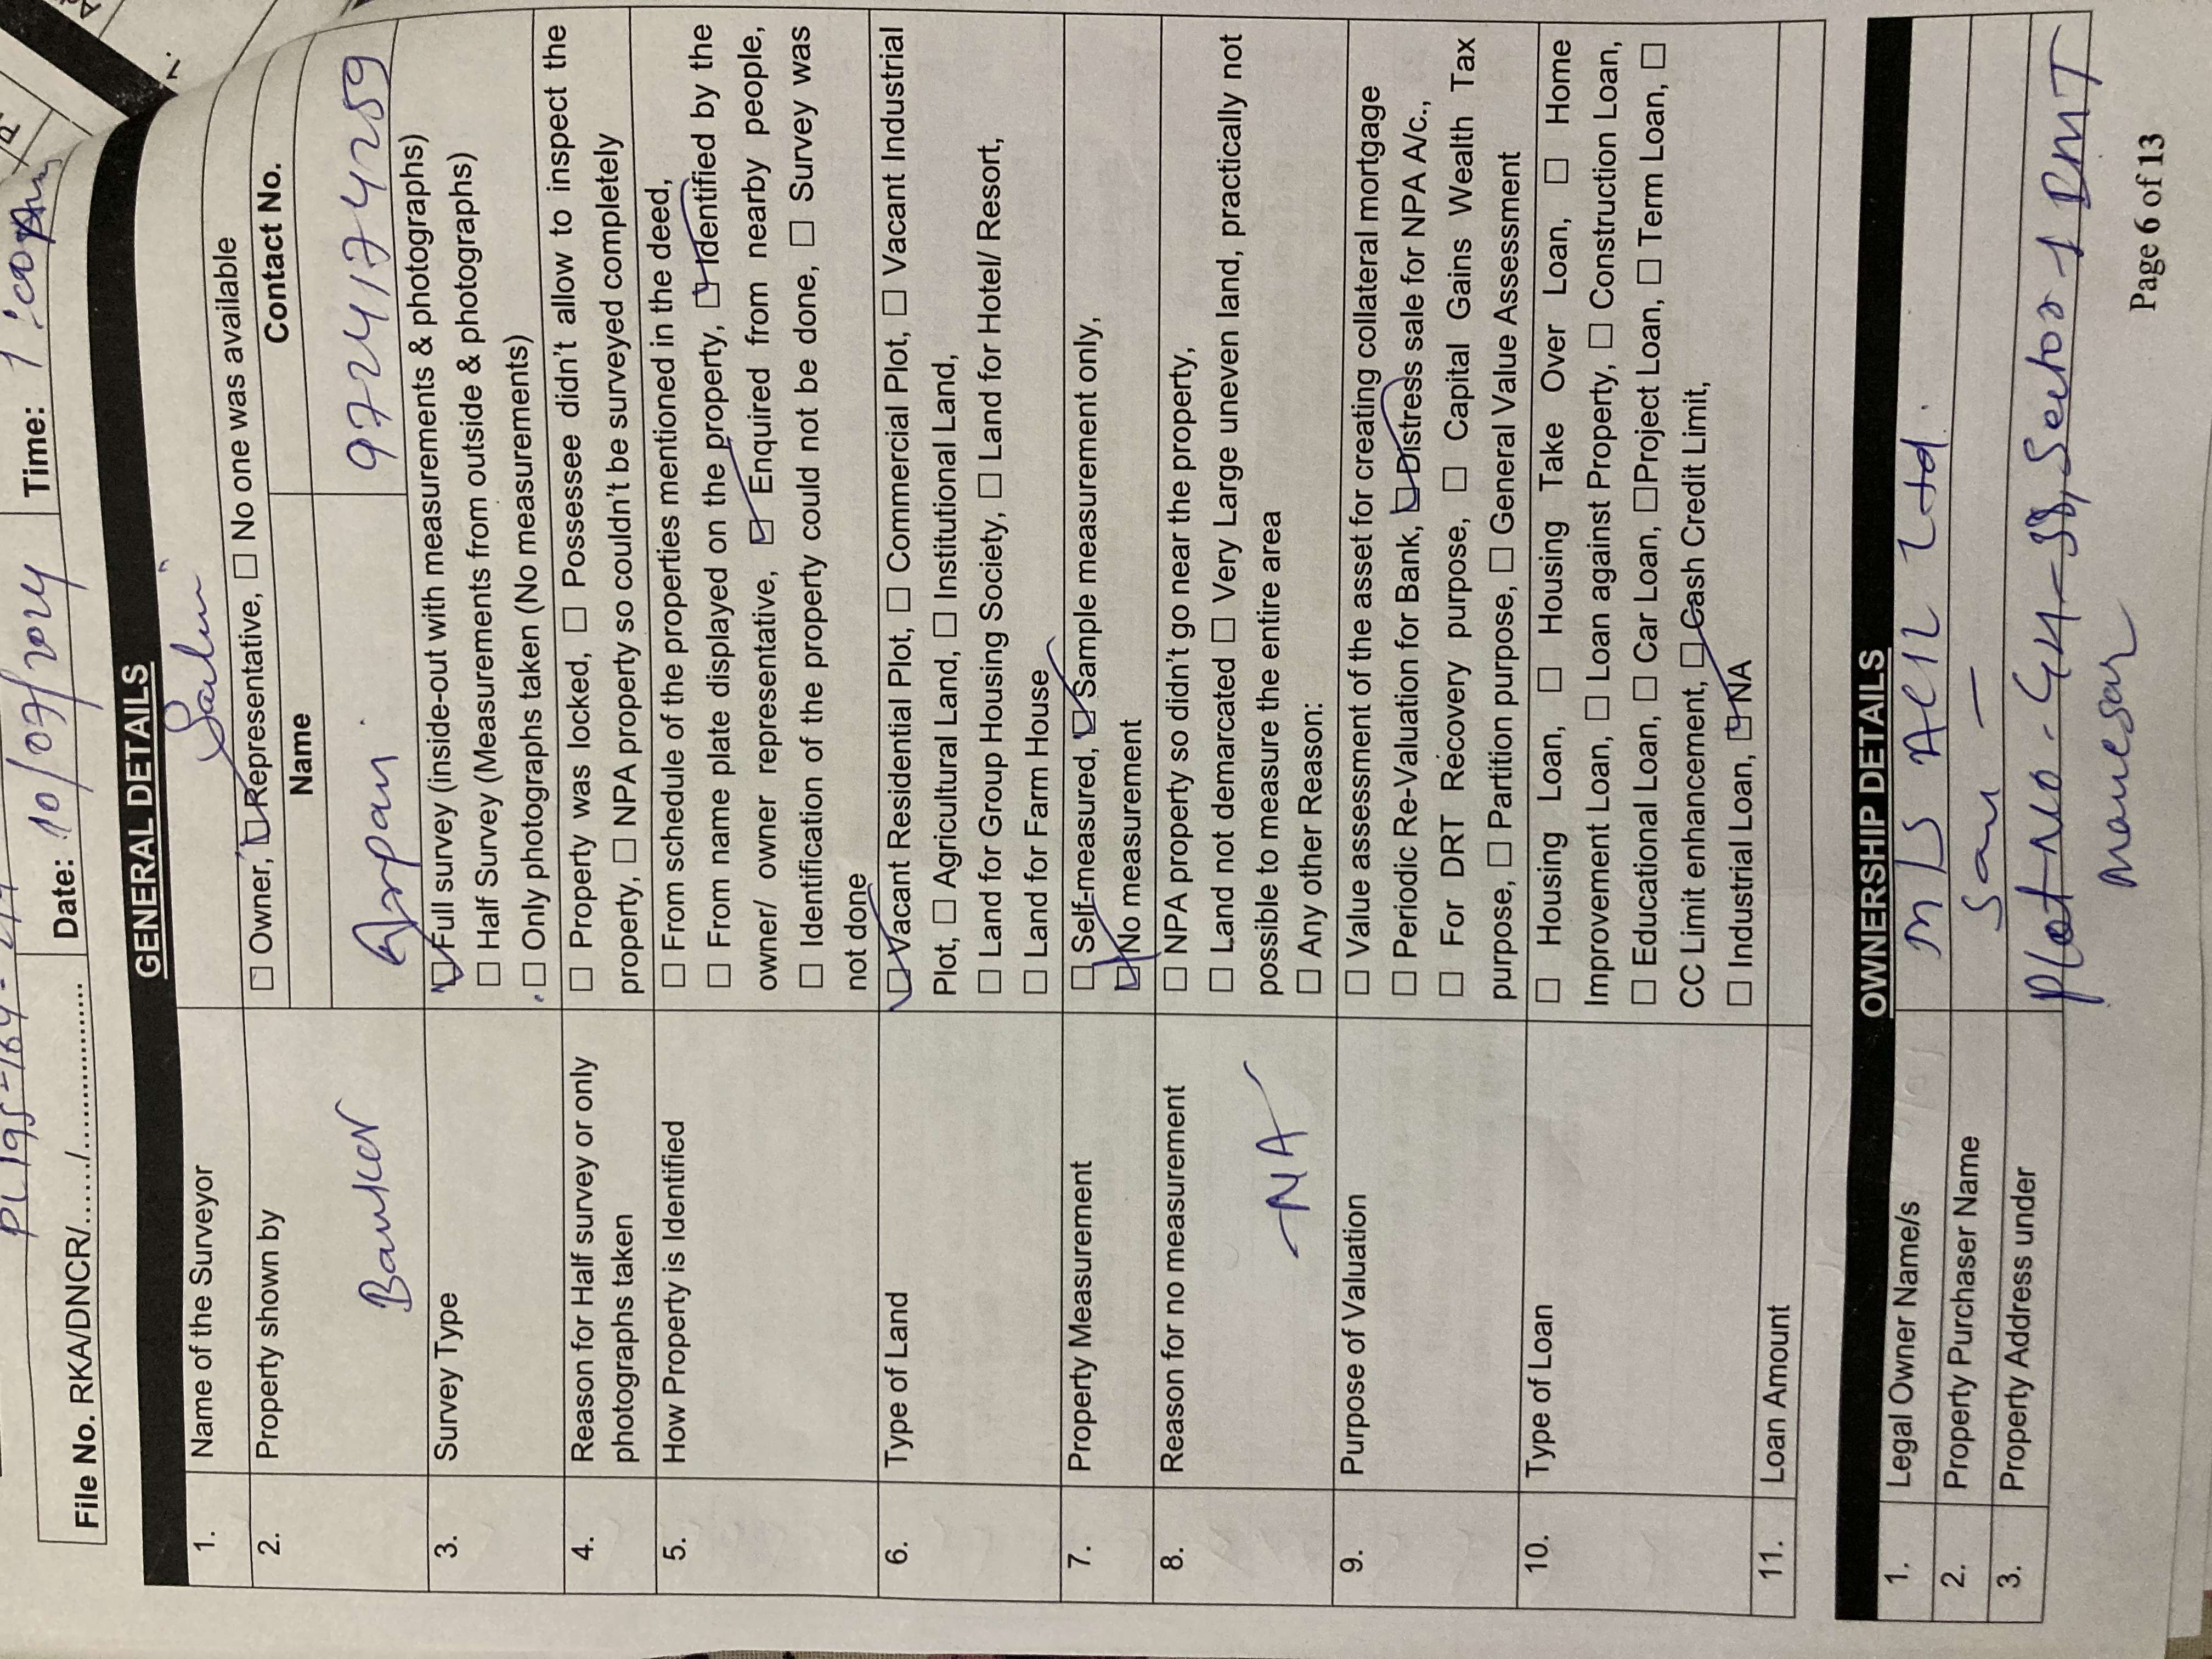 File No. RKA/DNCR/....../.................. Date: 10/07/2024 Time:
GENERAL DETAILS
1. Name of the Surveyor
2. Property shown by ☐ Owner, ☑ Representative, ☐ No one was available
Name Contact No.
Banker 9724174259
3. Survey Type ☑ Full survey (inside-out with measurements & photographs)
☐ Half Survey (Measurements from outside & photographs)
☐ Only photographs taken (No measurements)
4. Reason for Half survey or only photographs taken ☐ Property was locked, ☐ Possessee didn't allow to inspect the
property, ☐ NPA property so couldn't be surveyed completely
5. How Property is Identified ☐ From schedule of the properties mentioned in the deed,
☐ From name plate displayed on the property, ☑ Identified by the
owner/ owner representative, ☑ Enquired from nearby people,
☐ Identification of the property could not be done, ☐ Survey was
not done
6. Type of Land ☑ Vacant Residential Plot, ☐ Commercial Plot, ☐ Vacant Industrial
Plot, ☐ Agricultural Land, ☐ Institutional Land,
☐ Land for Group Housing Society, ☐ Land for Hotel/ Resort,
☐ Land for Farm House
7. Property Measurement ☐ Self-measured, ☑ Sample measurement only,
☑ No measurement
8. Reason for no measurement ☐ NPA property so didn't go near the property,
☐ Land not demarcated ☐ Very Large uneven land, practically not
possible to measure the entire area
NA ☐ Any other Reason:
9. Purpose of Valuation ☐ Value assessment of the asset for creating collateral mortgage
☐ Periodic Re-Valuation for Bank, ☑ Distress sale for NPA A/c.,
☐ For DRT Recovery purpose, ☐ Capital Gains Wealth Tax
purpose, ☐ Partition purpose, ☐ General Value Assessment
10. Type of Loan ☐ Housing Loan, ☐ Housing Take Over Loan, ☐ Home
Improvement Loan, ☐ Loan against Property, ☐ Construction Loan,
☐ Educational Loan, ☐ Car Loan, ☐ Project Loan, ☐ Term Loan, ☐
CC Limit enhancement, ☐ Cash Credit Limit,
☐ Industrial Loan, ☑ NA
11. Loan Amount
OWNERSHIP DETAILS
1. Legal Owner Name/s M/S Ltd.
2. Property Purchaser Name
3. Property Address under Plot No. GH-, Sector 1 IMT
Manesar
Page 6 of 13